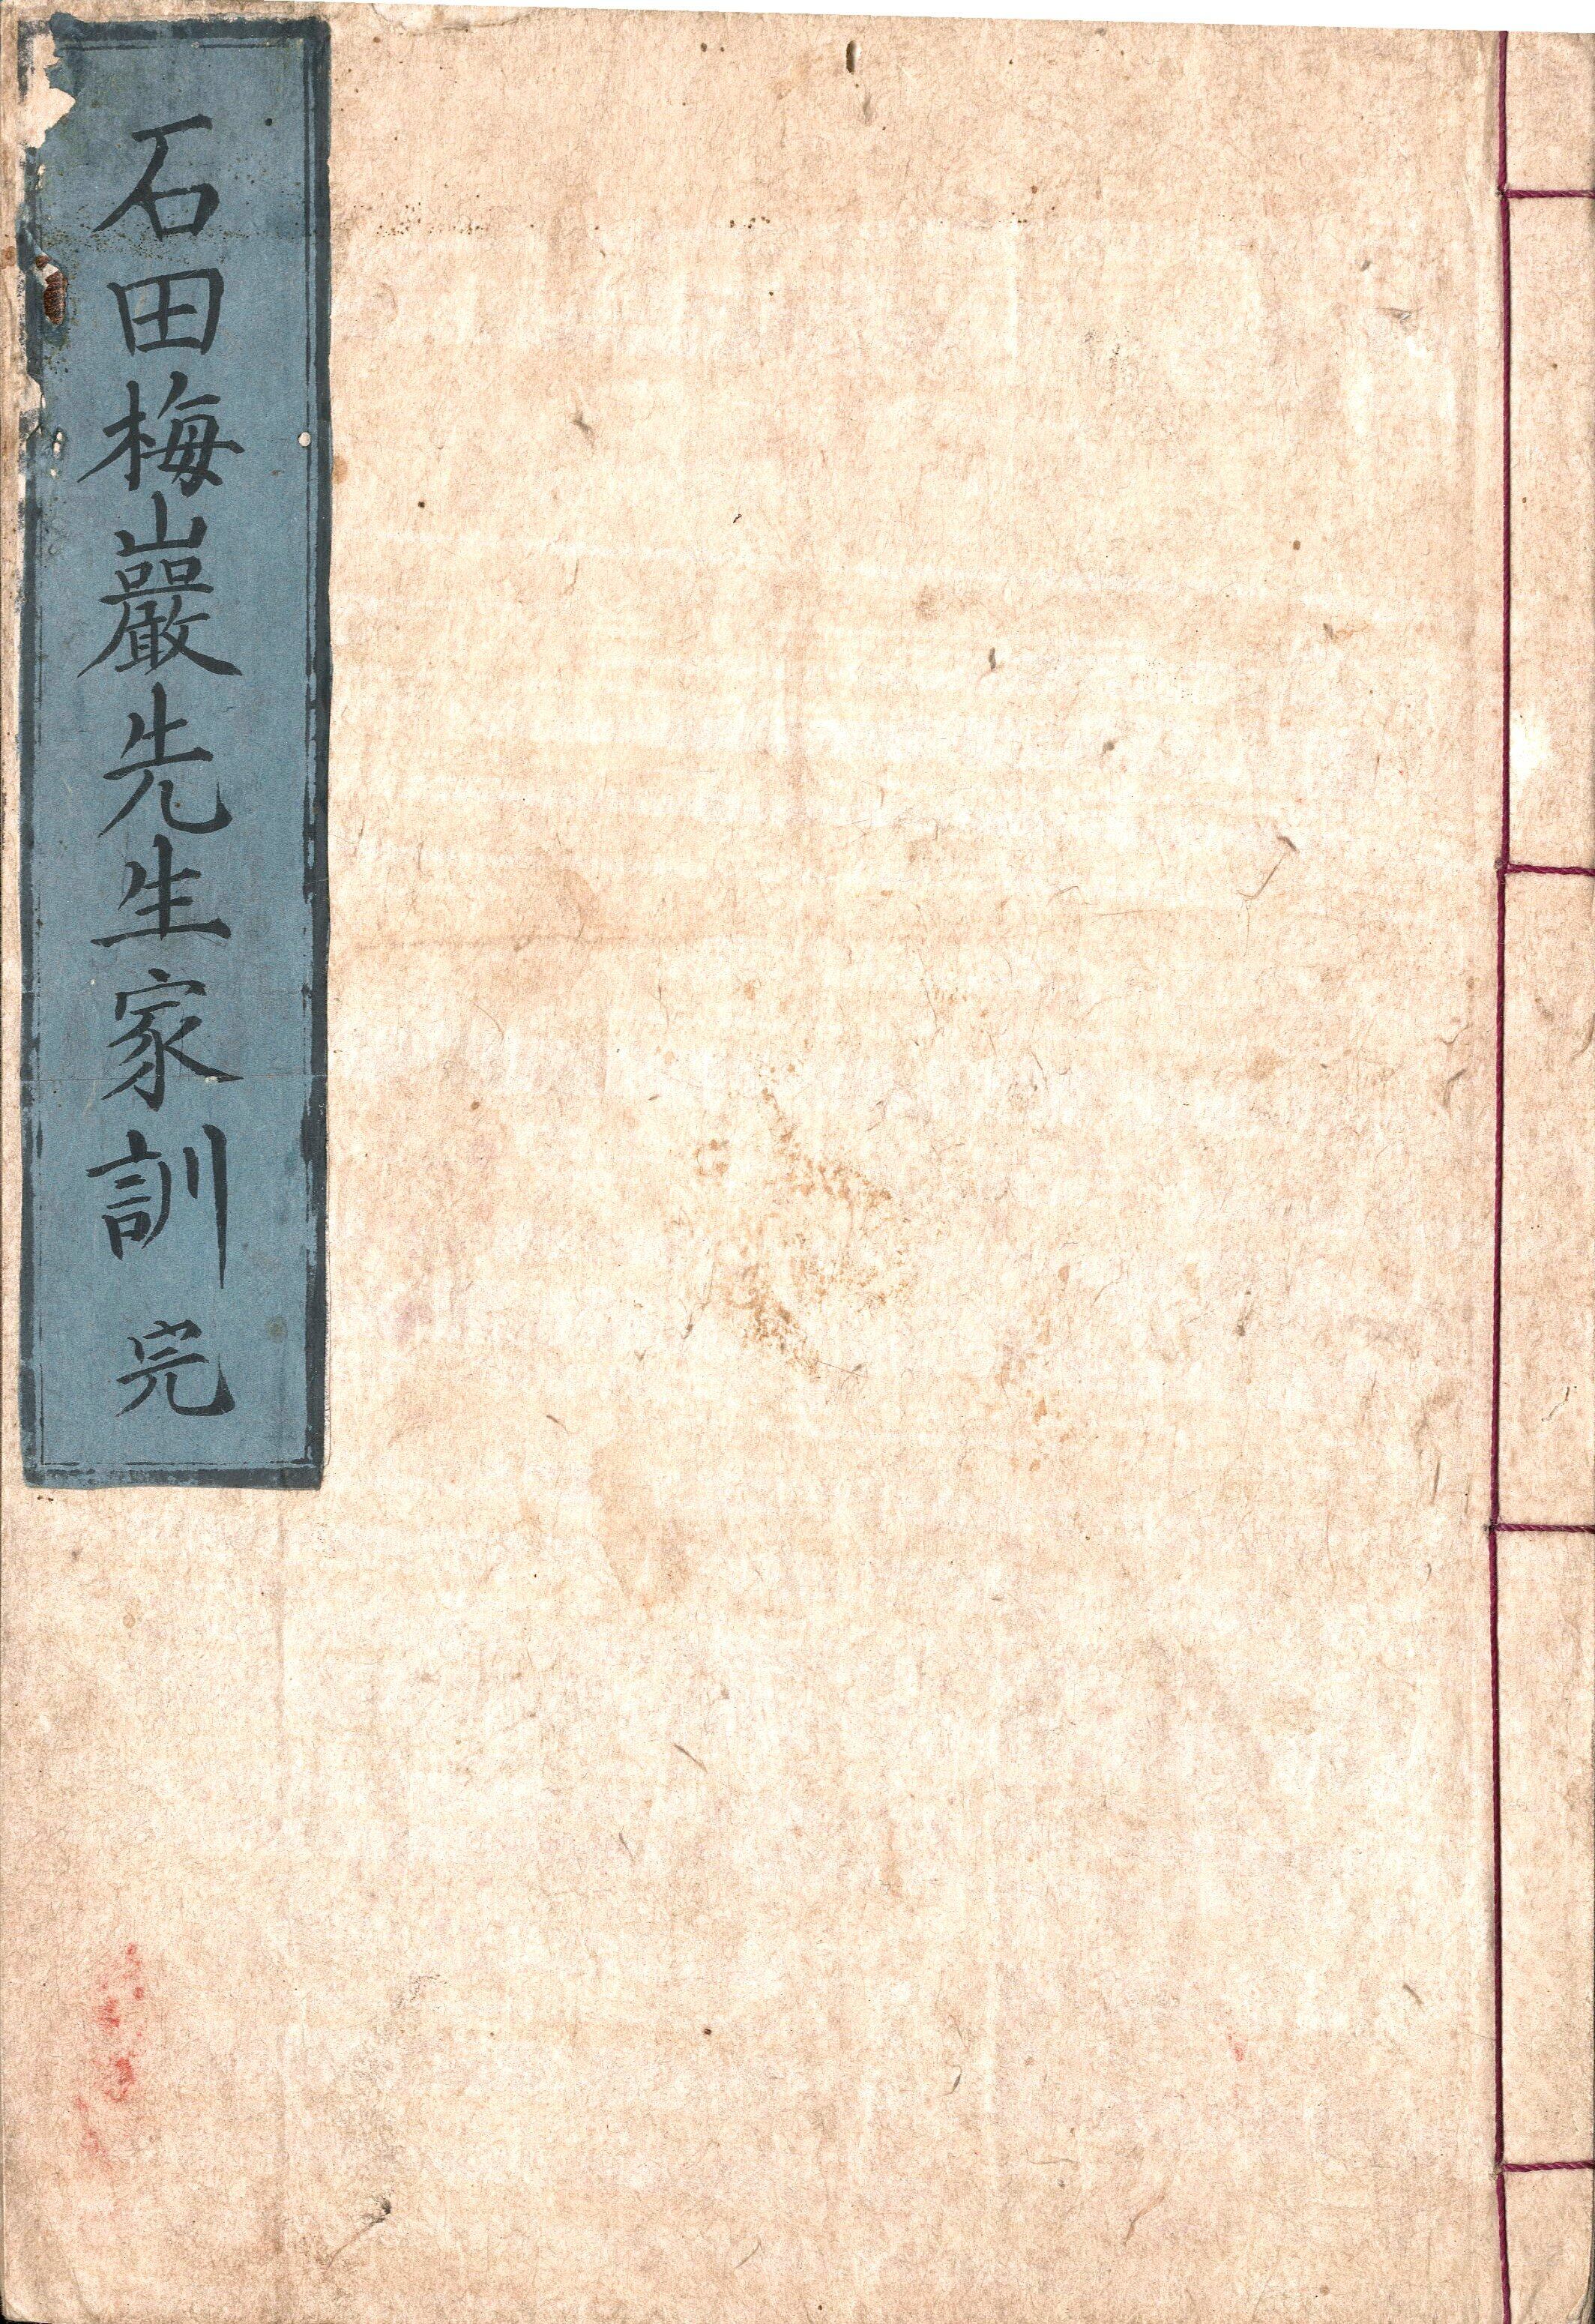 石田梅巖先生家訓 完